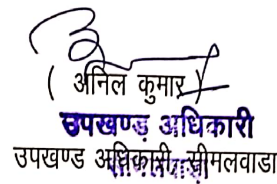 ( अनिल कुमार )
उपखण्ड अधिकारी
उपखण्ड अधिकारी, सीमलवाडा